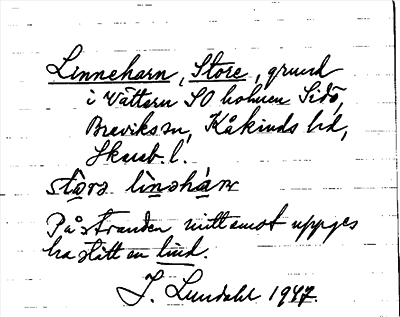 Linneharn, Store, grund
i Vättern SO holmen Sidö,
Breviks sn, Kåkinds hd,
Skarab. l.
stora linəhárn
På stranden mitt emot uppges
ha stått en lind.
J. Lundahl 1947